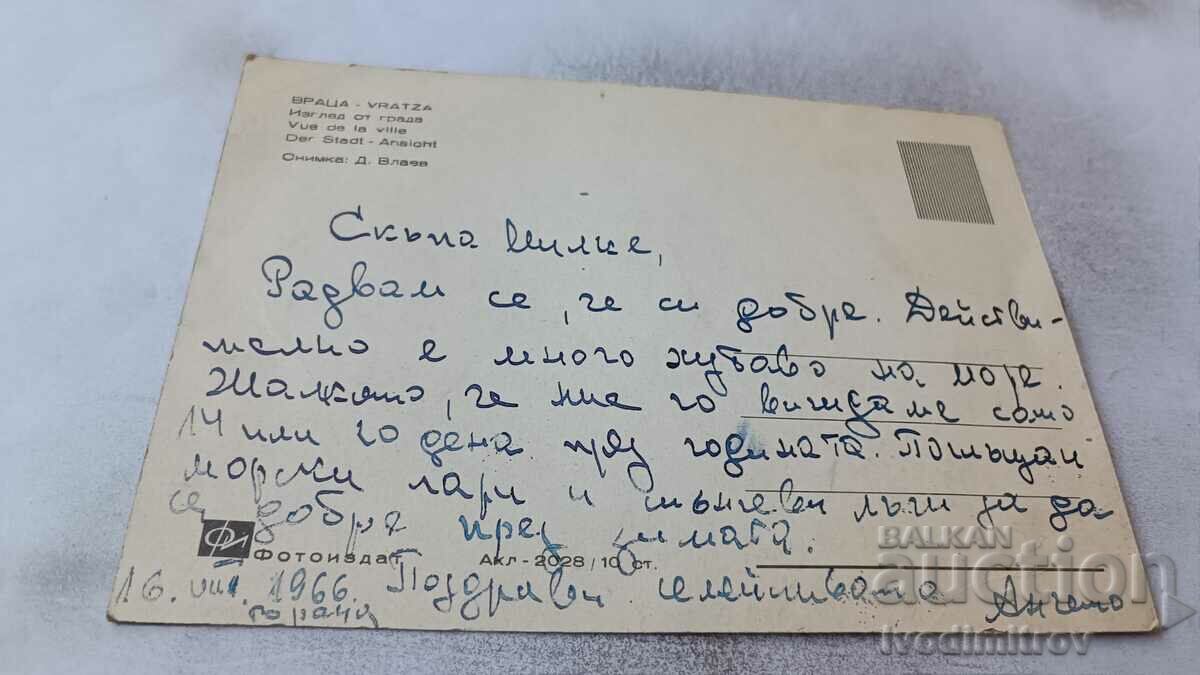 ВРАЦА - VRATZA
Изглед от града
Vue de la ville
Der Stadt - Ansicht
Снимка: Д. Влаев
Скъпа Милке,
Радвам се, че си добре. Действи-
телно е много хубаво на море.
Жалкото, че ние го виждаме само
14 или 20 дена през годината. Поглъщай
морски пари и слънчеви лъчи за да
си добре през зимата.
ФИ Фотоиздат Акл-2028/10 ст.
16.VIII.1966. Поздрави семейството Ангело
BALKAN
auction
ivodimitrov